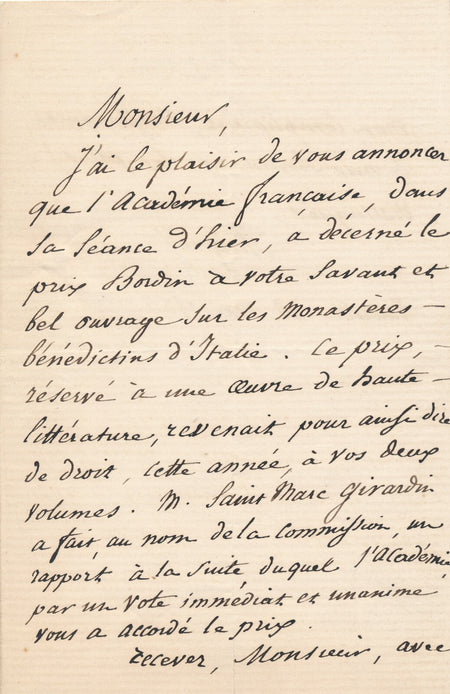 Monsieur,
J'ai le plaisir de vous annoncer
que l'Académie française, dans
sa séance d'hier, a décerné le
prix Bordin à votre savant et
bel ouvrage sur les Monastères –
bénédictins d'Italie. Ce prix, –
réservé à une œuvre de haute –
littérature, revenait pour ainsi dire
de droit, cette année, à vos deux
volumes. M. Saint Marc Girardin
a fait, au nom de la Commission, un
rapport à la suite duquel l'Académie
par un vote immédiat et unanime
vous a accordé le prix.
Recevez, Monsieur, avec